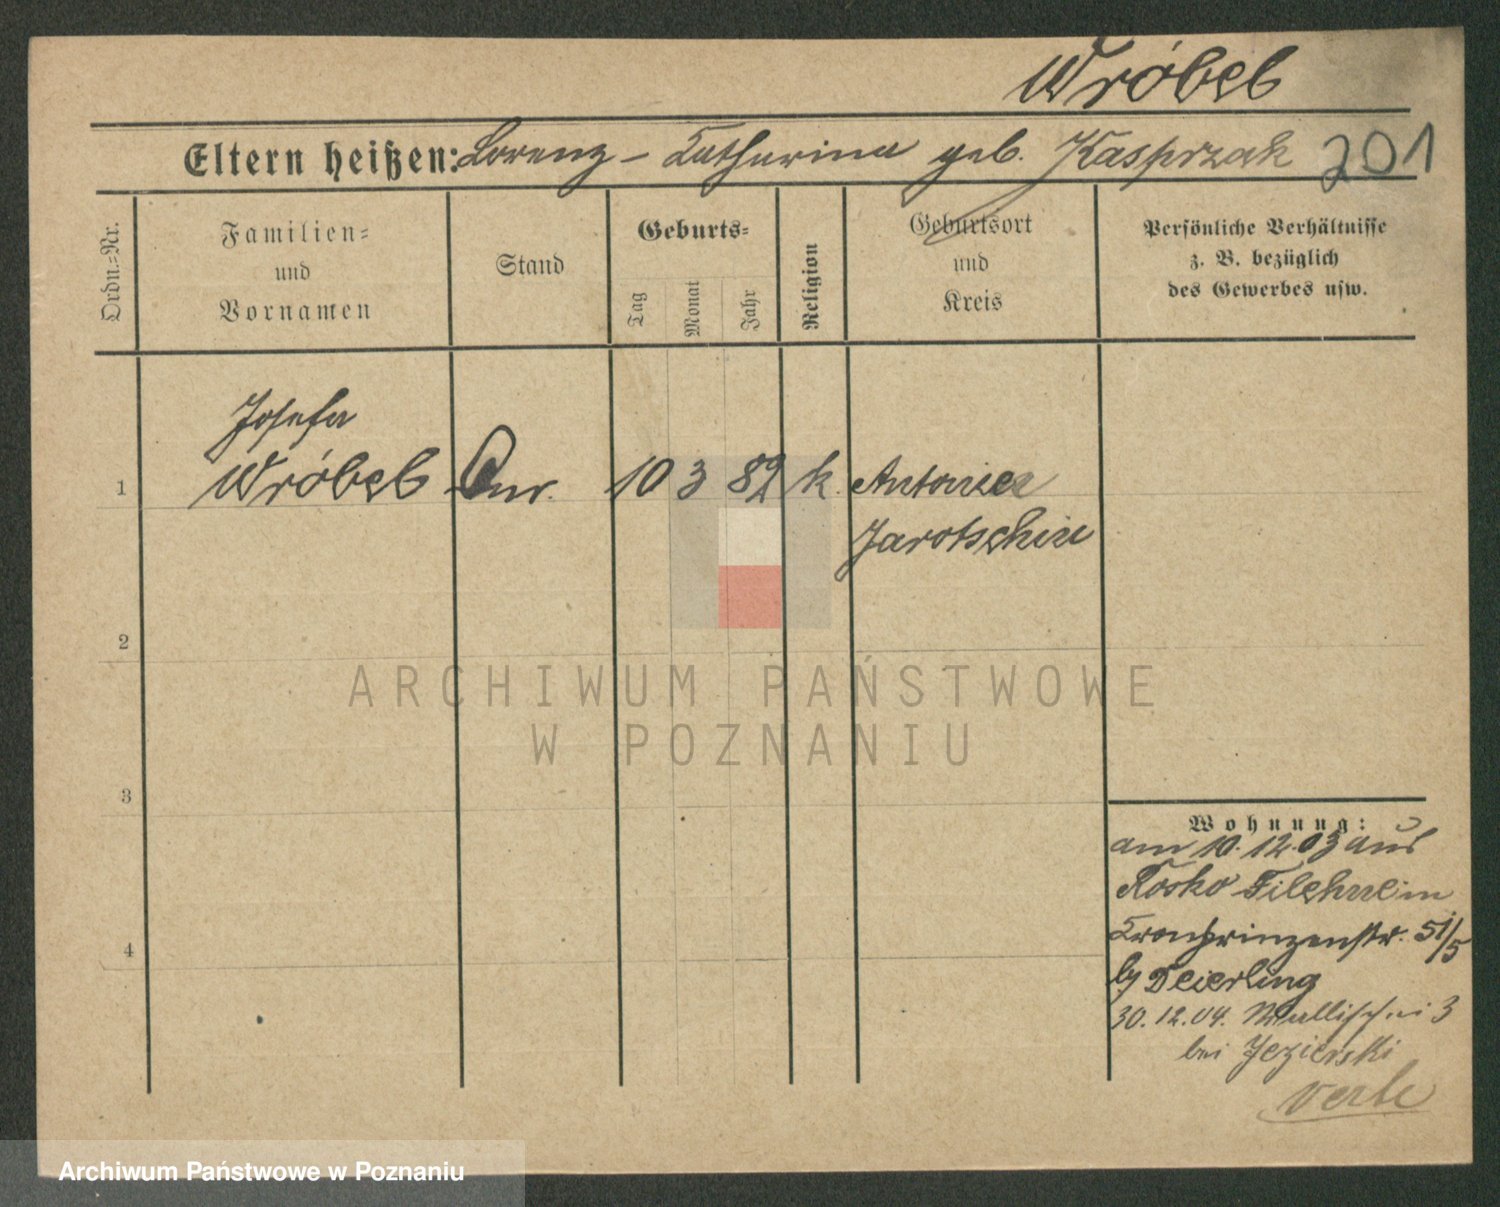 Wróbel
Eltern heißen: Lorenz – Catharina geb. Kasprzak 201
Ordn.=Nr.
Familien=
und
Vornamen
Stand
Geburts=
Tag
Monat
Jahr
Religion
Geburtsort
und
Kreis
Persönliche Verhältnisse
z. B. bezüglich
des Gewerbes usw.
Josefa
1 Wróbel 10 3 82 k. Antonien
Jarotschin
2
ARCHIWUM PAŃSTWOWE
W POZNANIU
3
Wohnung:
am 10.12.03 aus
Rosko Filehne in
4 Kronprinzenstr. 51/5
by Deierling
30.12.04. Wallischei 3
bei Jezierski
Archiwum Państwowe w Poznaniu